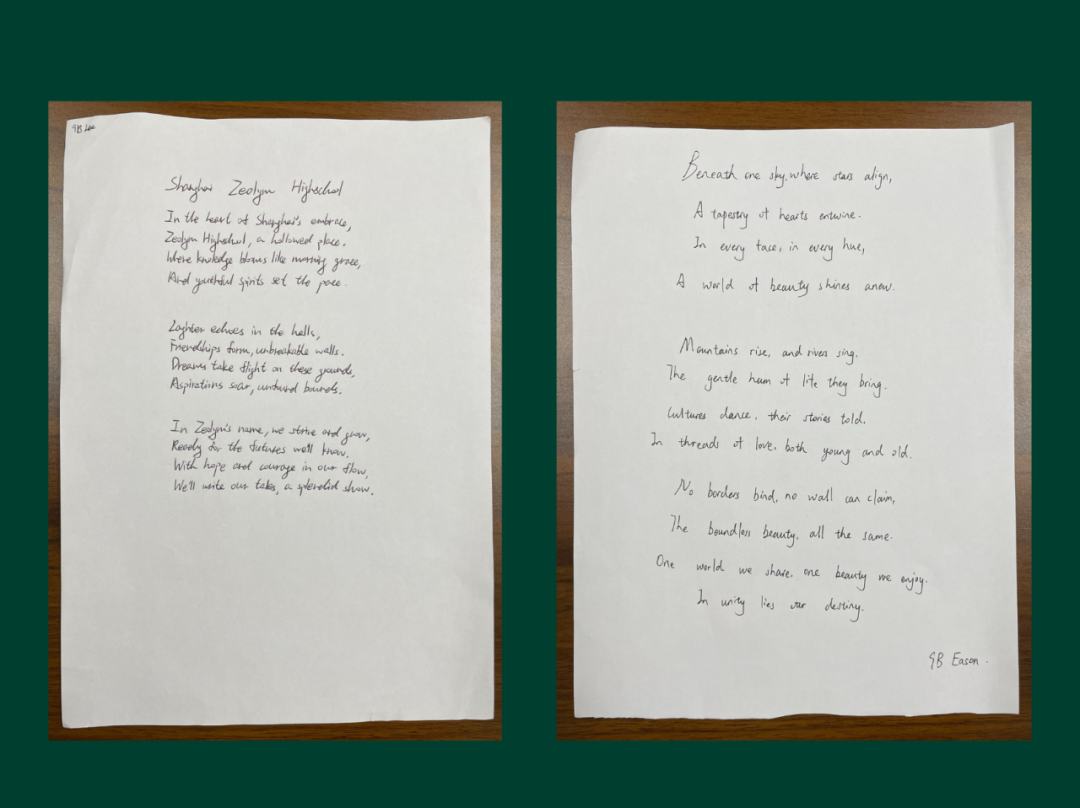 9B Lee
Shanghai Zeolym Highschool
In the heart of Shanghai's embrace,
Zeolym Highschool, a hallowed place.
Where knowledge blooms like morning grace,
And youthful spirits set the pace.
Laghter echoes in the halls,
Friendships form, unbreakable walls.
Dreams take flight on these grounds,
Aspirations soar, unbound bounds.
In Zeolym's name, we strive and grow,
Ready for the futures we'll know.
With hope and courage in our flow,
We'll write our tales, a splendid show.
Beneath one sky, where stars align,
A tapestry of hearts entwine.
In every face, in every hue,
A world of beauty shines anew.
Mountains rise, and rivers sing.
The gentle hum of life they bring.
Cultures dance, their stories told.
In threads of love, both young and old.
No borders bind, no wall can claim,
The boundless beauty, all the same.
One world we share, one beauty we enjoy.
In unity lies our destiny.
9B Eason.